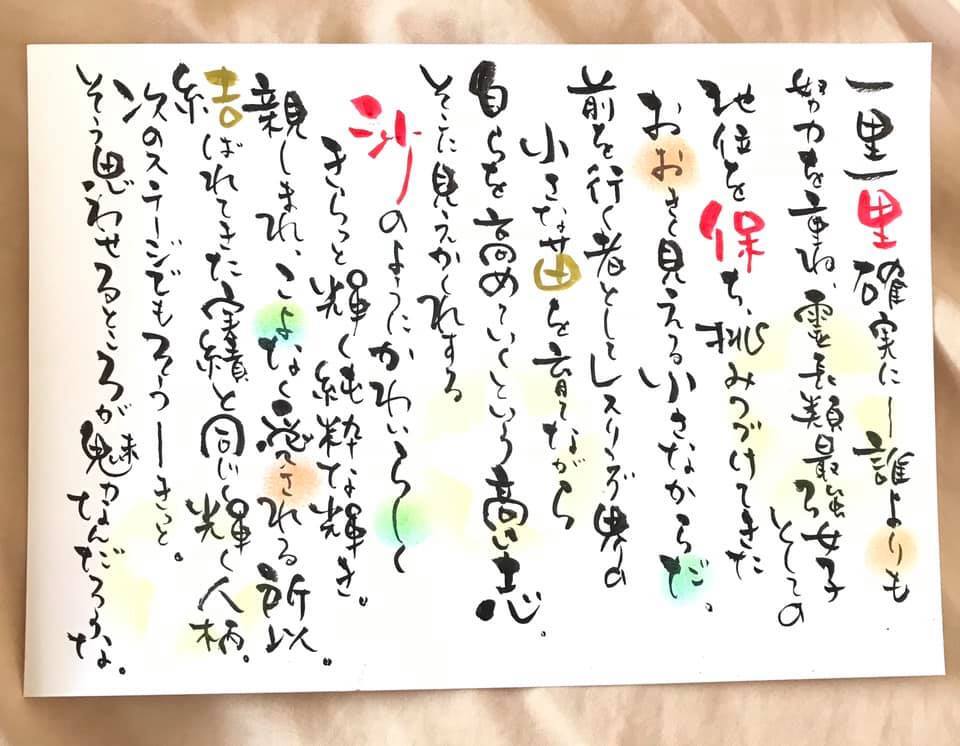 一里一里確実に―誰よりも
努力を重ね、霊長類最強女子
としての
地位を保ち、挑みつづけてきた
おおきく見える小さなからだ。
前を行く者としてレスリング界の
小さな苗を育てながら
自らを高めていくという高い志。
そこに見えかくれする
沙のようにかわいらしく
きらっと輝く純粋な輝き。
親しまれ、こよなく愛される所以。
結ばれてきた実績と同じく輝く人柄。
次のステージでもそう―きっと。
そう思わせるところが魅力なんだろうな。